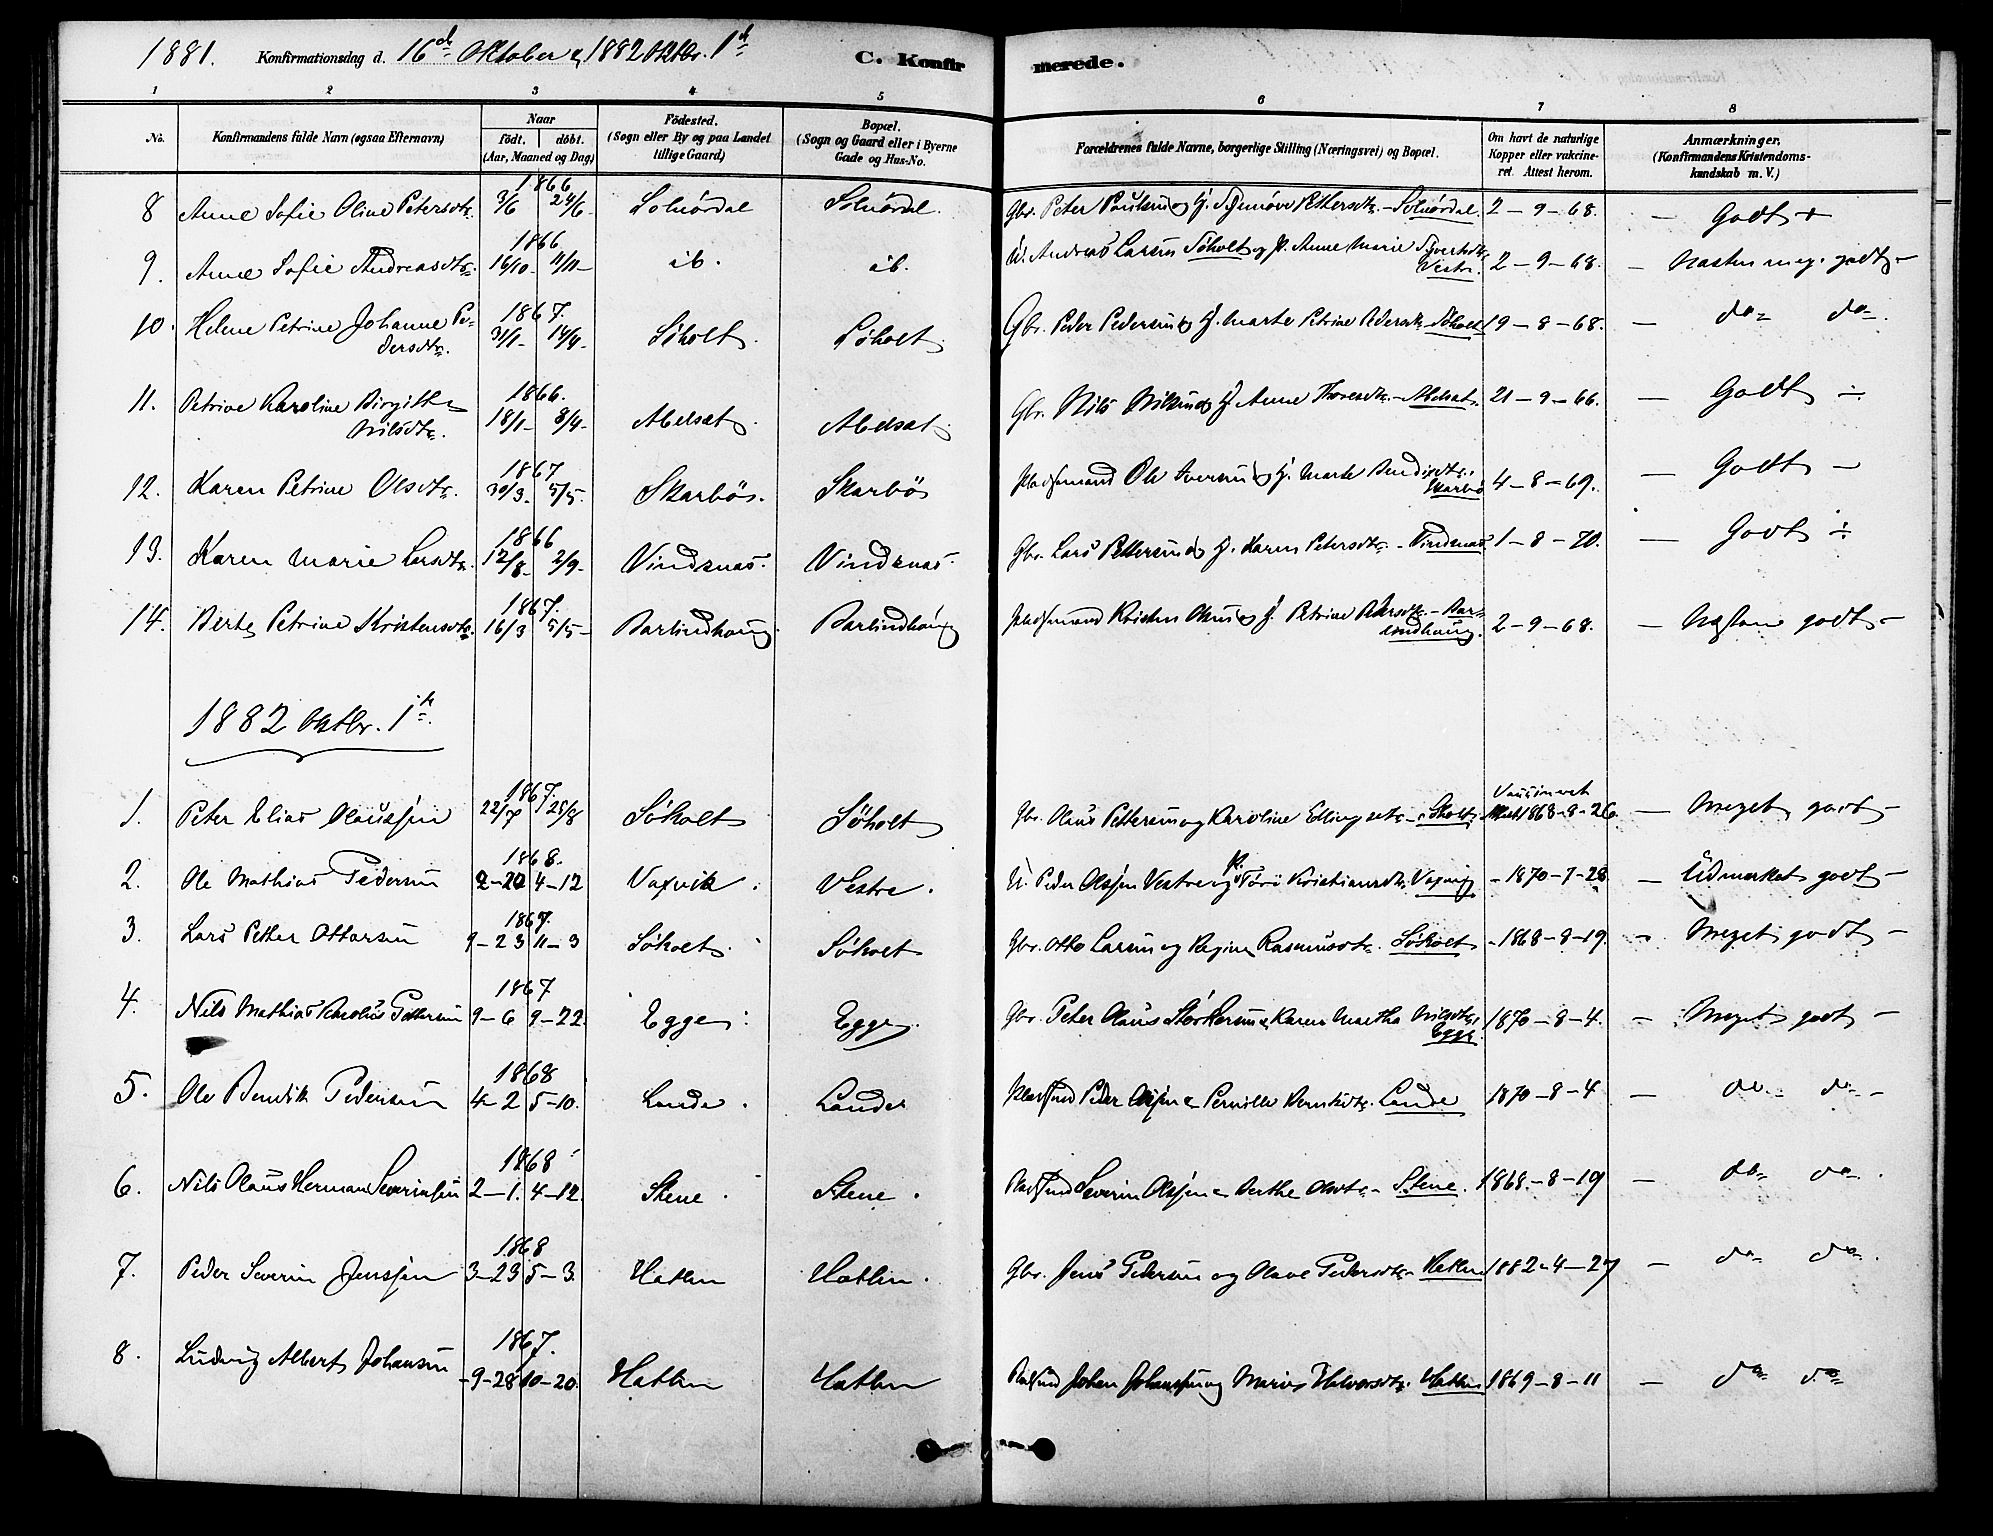 1881. Konfirmationsdag d. 16de Oktober & 1882 Oktbr. 1ste
C. Konfirmerede.
1 2 3 4 5 6 7 8
No.
Konfirmandens fulde Navn (ogsaa Efternavn)
Naar
födt. döbt.
(Aar, Maaned og Dag)
Födested.
(Sogn eller By og paa Landet
tillige Gaard)
Bopæl.
(Sogn og Gaard eller i Byerne
Gade og Hus-No.
Forældrenes fulde Navne, borgerlige Stilling (Næringsvei) og Bopæl.
Om havt de naturlige
Kopper eller vakcine-
ret. Attest herom.
Anmærkninger,
(Konfirmandens Kristendoms-
kundskab m. V.)
1866
8 Anne Sofie Oline Petersdtr. 3/6 24/6- Solnørdal Solnørdal. Gbr. Peter Paulsen og H. Petersdtr. - Solnørdal. 2-9-68. - Godt +
1866
9. Anne Sofie Andreasdtr. 16/10- 11/11- ib. ib. Andreas Larsen Søholt og P. Anne Marie Vestre 2-9-68. - Næsten meg. godt -
1867.
10. Helene Petrine Johanne Pe-
dersdtr. 31/1- 14/4- Søholt. Søholt. Gbr. Peder Pedersen og H. Marte Petrine Pedersdtr. - Søholt 19-8-68. - do do.
1866.
11. Petrine Karoline Birgitte
Nilsdtr. 18/1- 8/4- Abelset. Abelset. Gbr. Nils Nilsen og H. Anne Thoresdtr. - Abelset. 21-9-66. - Godt ÷
1867
12. Karen Petrine Olsdtr. 30/3- 5/5- Skarbös. Skarbös Pladsmand Ole Iversen og H. Marte Bendiksdtr. Skarbø 4-8-69. - Godt -
1866
13. Karen Marie Larsdtr. 12/8- 2/9- Vindsnæs. Vindsnæs. Gbr. Lars Pettersen og H. Karen Petersdtr. - Vindsnæs 1-8-70. - Godt ÷
1867.
14. Berte Petrine Kristensdtr. 16/3 5/5- Barlindhaug Barlindhaug Pladsmand Kristen Olsen og H. Petrine Petersdtr. - Bar-
lindhaug. 2-9-68. - Næsten godt -
1882 Oktbr. 1ste
1867.
1. Peter Elias Olaussen 22/7 25/8 Söholt Söholt Gbr. Olaus Pettersen og Karoline Ellingsdtr. - Søholt Vaccineret
Attest 1868-8-26. - Meget godt -
1868.
2. Ole Mathias Pedersen 2-22 4-12 Vaxvik. Vestre. U. Peder Olssen Vestre og P. Kristiansdtr. Vaxvig - 1870-7-28 - Udmærket godt -
1867.
3. Lars Petter Ottersen 9-23 11-3 Søholt. Søholt Gbr. Otto Larsen og Regine Rasmusdtr. Søholt - 1868-8-19. - Meget godt -
1867
4. Nils Mathias Pettersen 9-6 9-22. Egge. Egge. Gbr. Peter Olaus Storkersen & Karen Martha Nilsdtr.
Egge. 1870-8-4. - Meget godt -
1868
5. Ole Bendik Pedersen 4-2 5-10. Lande. Lande Pladsmd Peder Olssen & Pernille Berntsdtr. Lande 1870-8-4 - do. do. -
1868
6. Nils Olaus Herman Severinsen 2-1. 4-12. Stene. Stene. Pladsmd Severin Olssen & Berthe Olsdtr. - Stene. 1868-8-19 - do do.
1868
7. Peder Severin Jenssen 3-23 5-3. Hatlen Hatlen. Gbr. Jens Pedersen og Olave Pedersdtr. Hatlen 1882-4-27 - do do.
1867.
8. Ludvig Albert Johansen -9-28 10-20. Hatlen Hatlen Pladsmd Johan Johanssen og Marie Halvorsdtr. Hatlen 1869-8-11 - do do